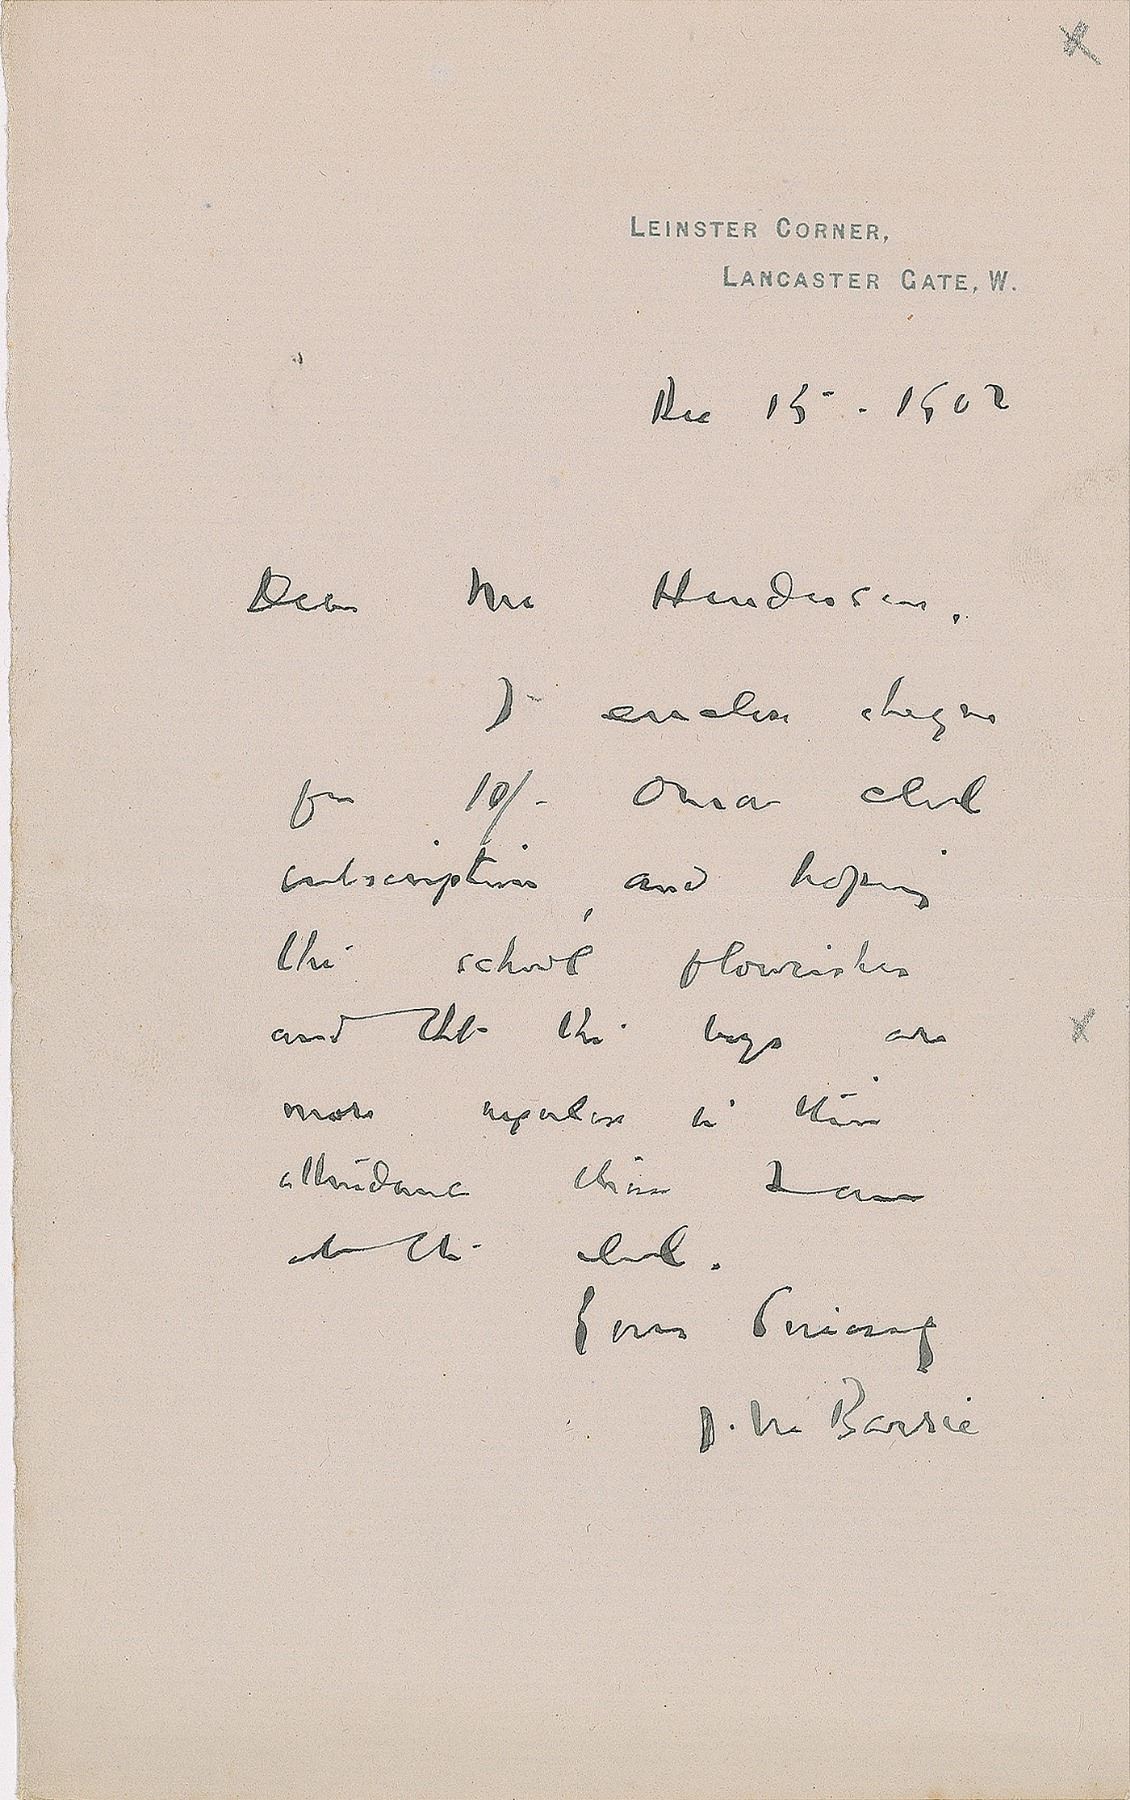 LEINSTER CORNER,
LANCASTER GATE, W.
Dec 15 - 1902
Dear Mr Henderson,
I enclose cheque
for 10/- Omar club
subscription, and hoping
the school flourishes
and that the boys are
more regular in their
attendance than I am
at the club.
Yours Sincerely
J. M. Barrie